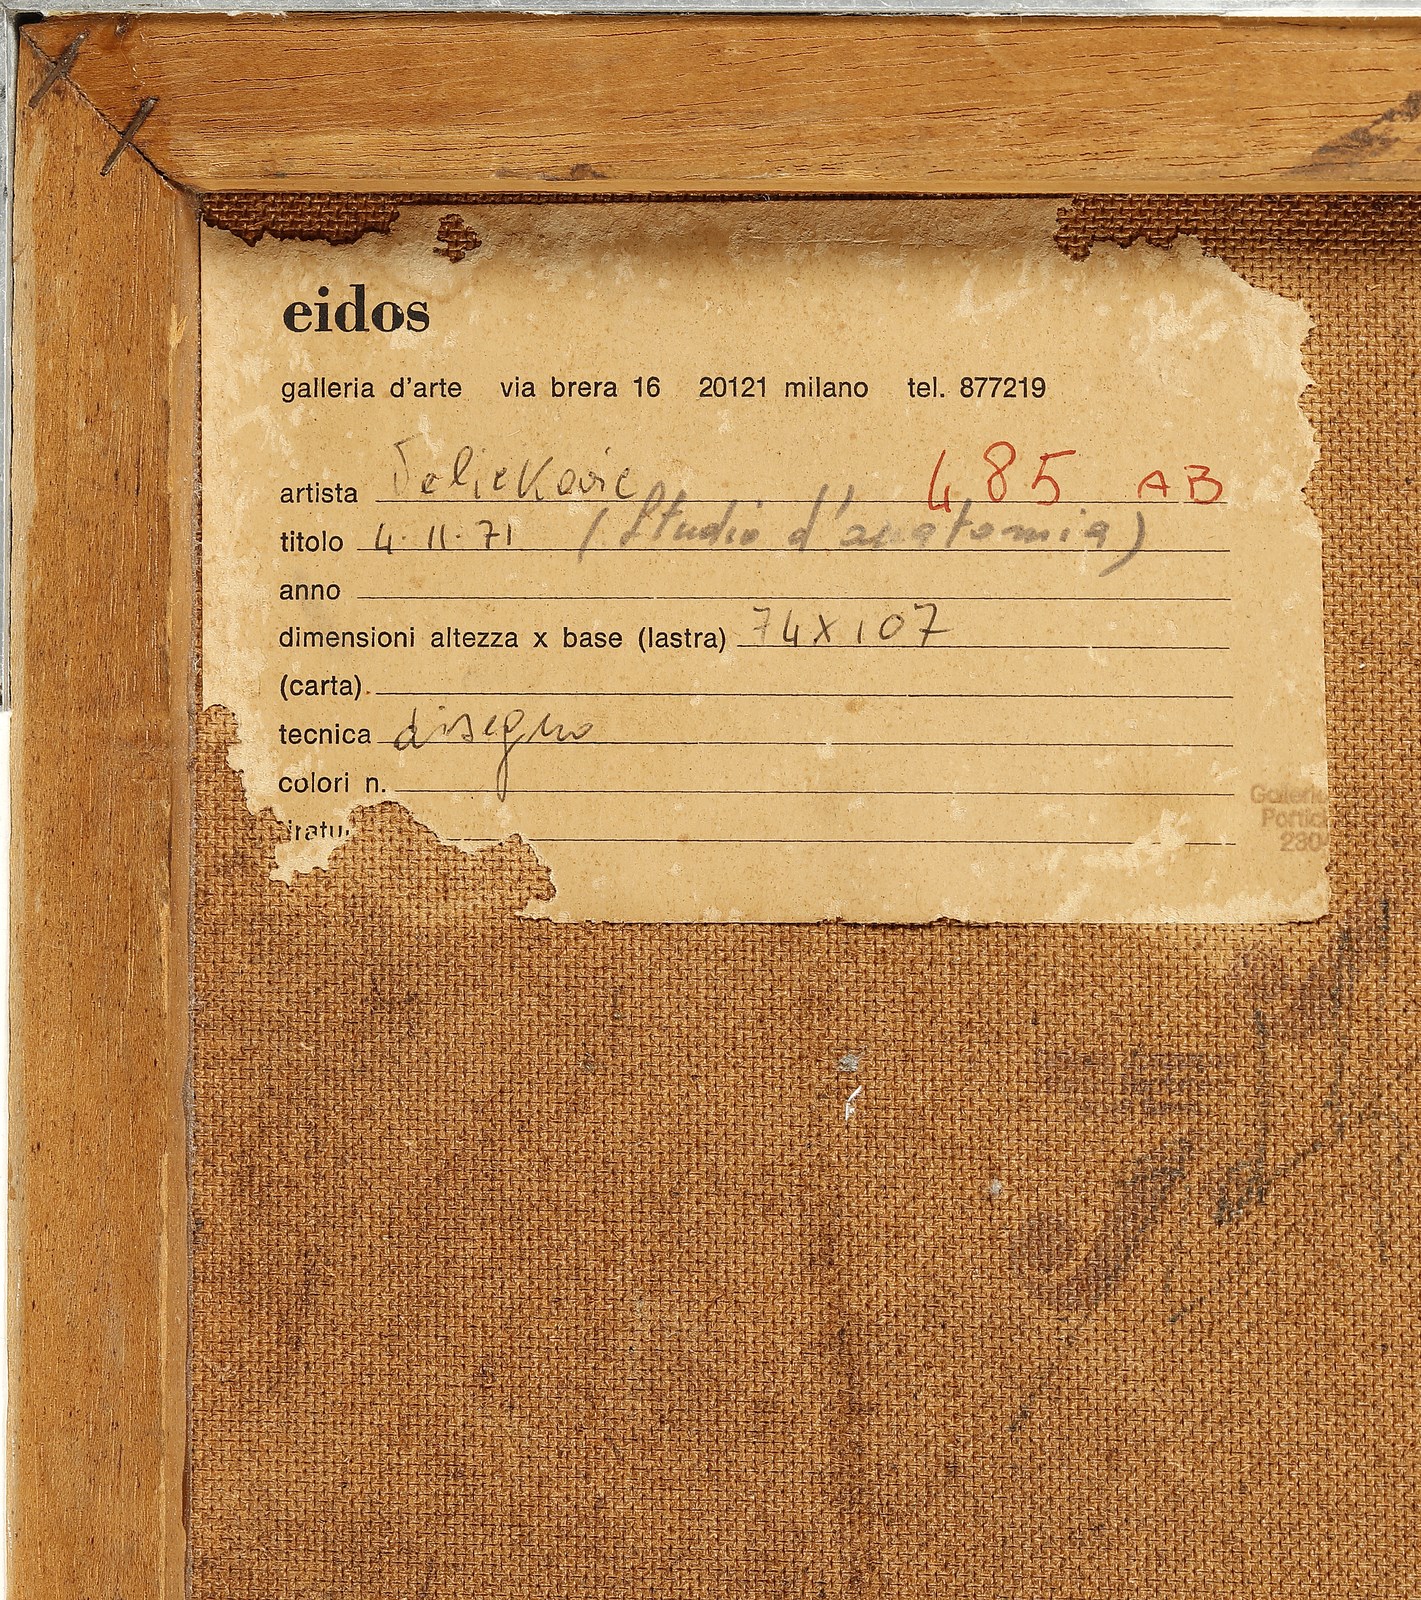 eidos
galleria d'arte via brera 16 20121 milano tel. 877219
artista Velickovic 485 AB
titolo 4.11.71 (Studio d'anatomia)
anno
dimensioni altezza x base (lastra) 74x107
(carta)
tecnica disegno
colori n.